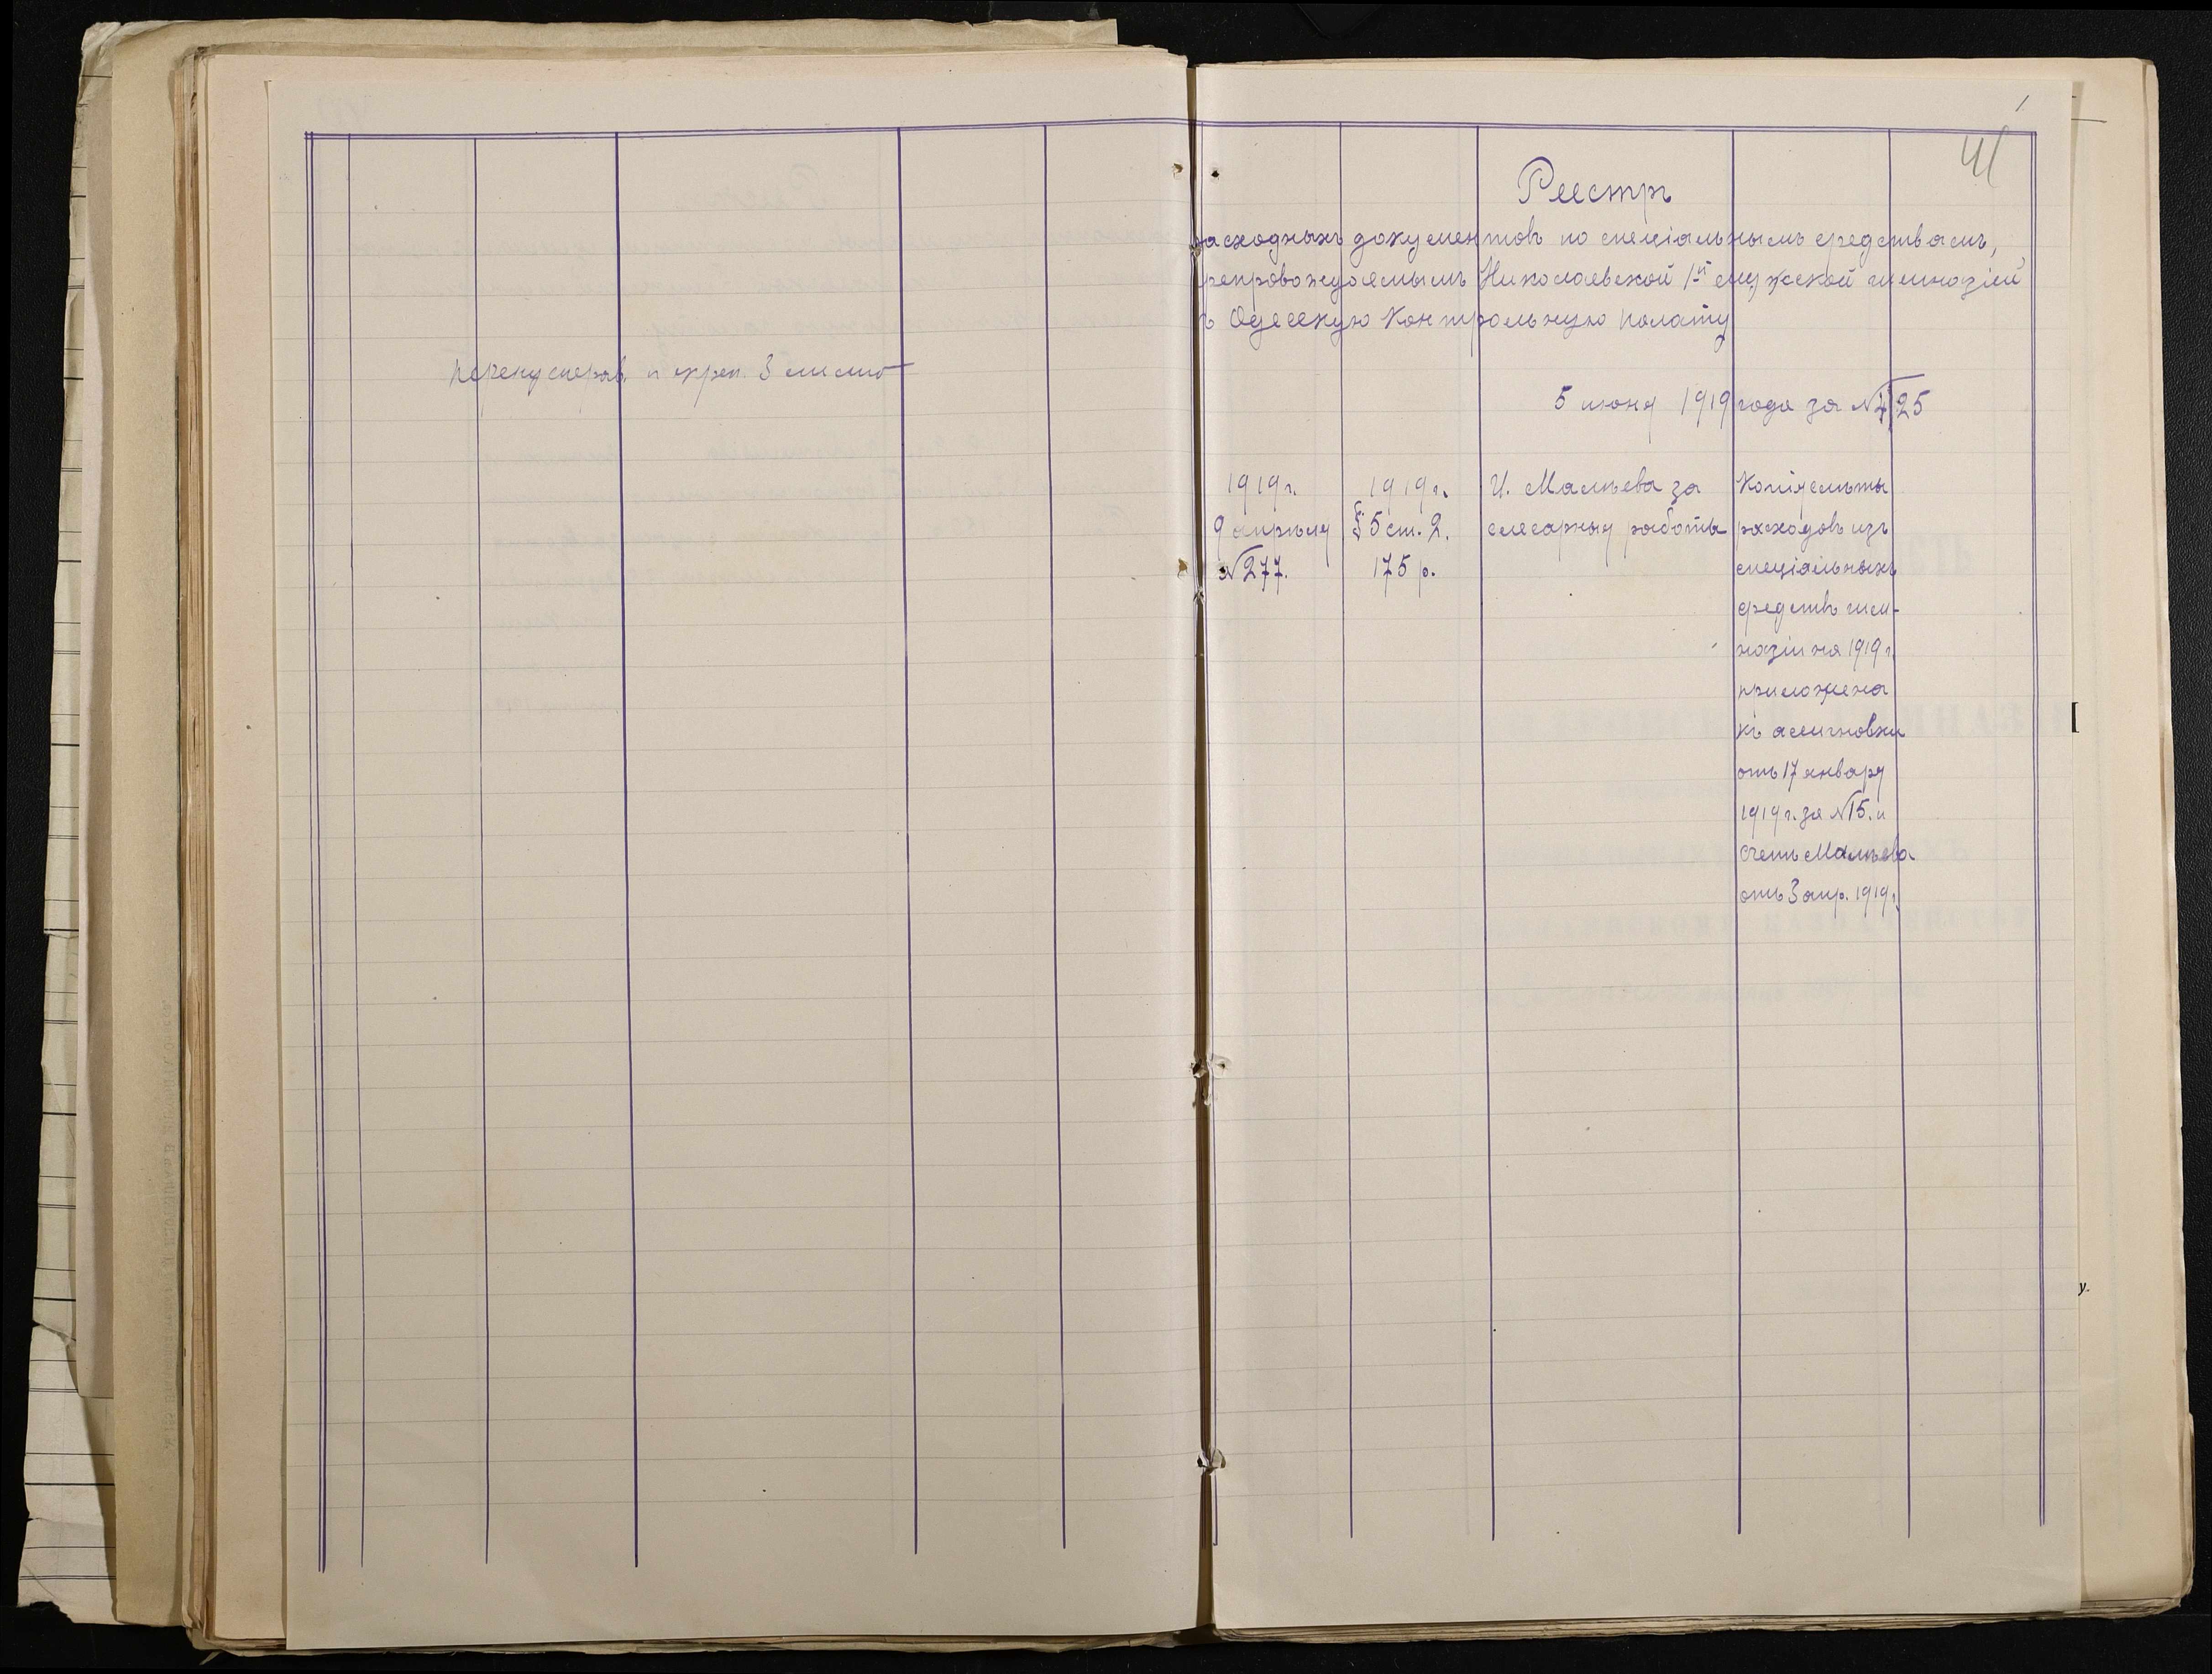 перенумеров. и скреп. 3 листа
1
41
Реестръ
расходныхъ документовъ по спеціальнымъ средствамъ,
препровождаемымъ Николаевской 1-й мужской гимназіей
въ Одесскую Контрольную палату
5 іюня 1919 года за № 425
1919 г.
9 апрѣля
№ 277.
1919 г.
§ 5 ст. 2.
175 р.
И. Малѣева за
слесарныя работы
Копія смѣты
расходовъ изъ
спеціальныхъ
средствъ гим-
назіи на 1919 г.
приложена
къ ассигновки
отъ 17 января
1919 г. за № 15. и
счетъ Малѣева
отъ 3 апр. 1919 г.